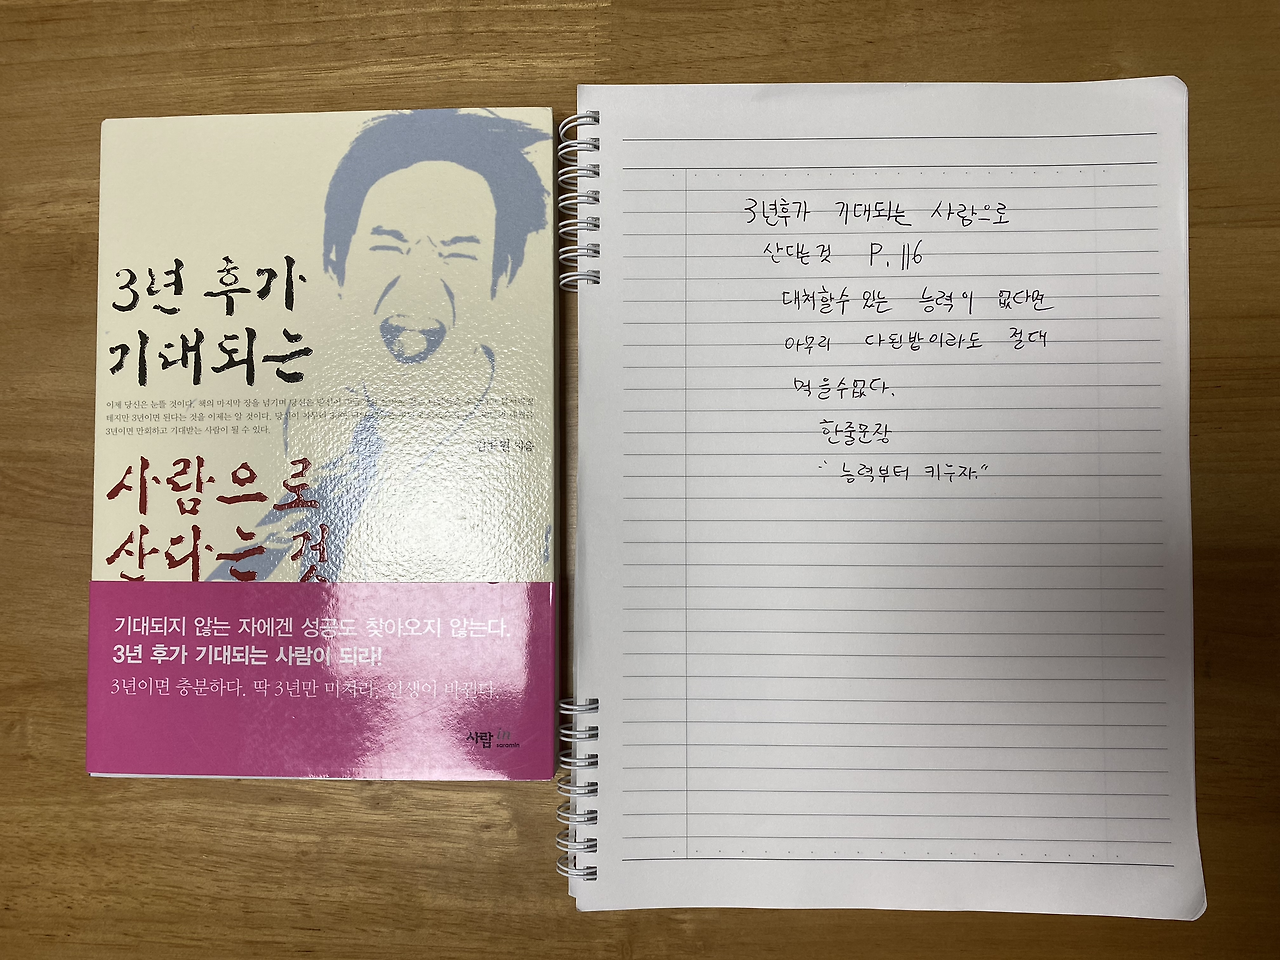 3년 후가
기대되는
이제 당신은 눈뜰 것이다. 책의 마지막 장을 넘기며 당신은
테지만 3년이면 된다는 것을 이제는 알 것이다. 당신이
3년이면 만회하고 기대받는 사람이 될 수 있다.
지음
사람으로
산다는 것
기대되지 않는 자에겐 성공도 찾아오지 않는다.
3년 후가 기대되는 사람이 되라!
3년이면 충분하다. 딱 3년만 미쳐라, 인생이 바뀐다.
사람in
saramin
3년후가 기대되는 사람으로
산다는것 P.116
대처할수 있는 능력이 없다면
아무리 다된밥이라도 절대
먹을수없다.
한줄문장
"능력부터 키우자."